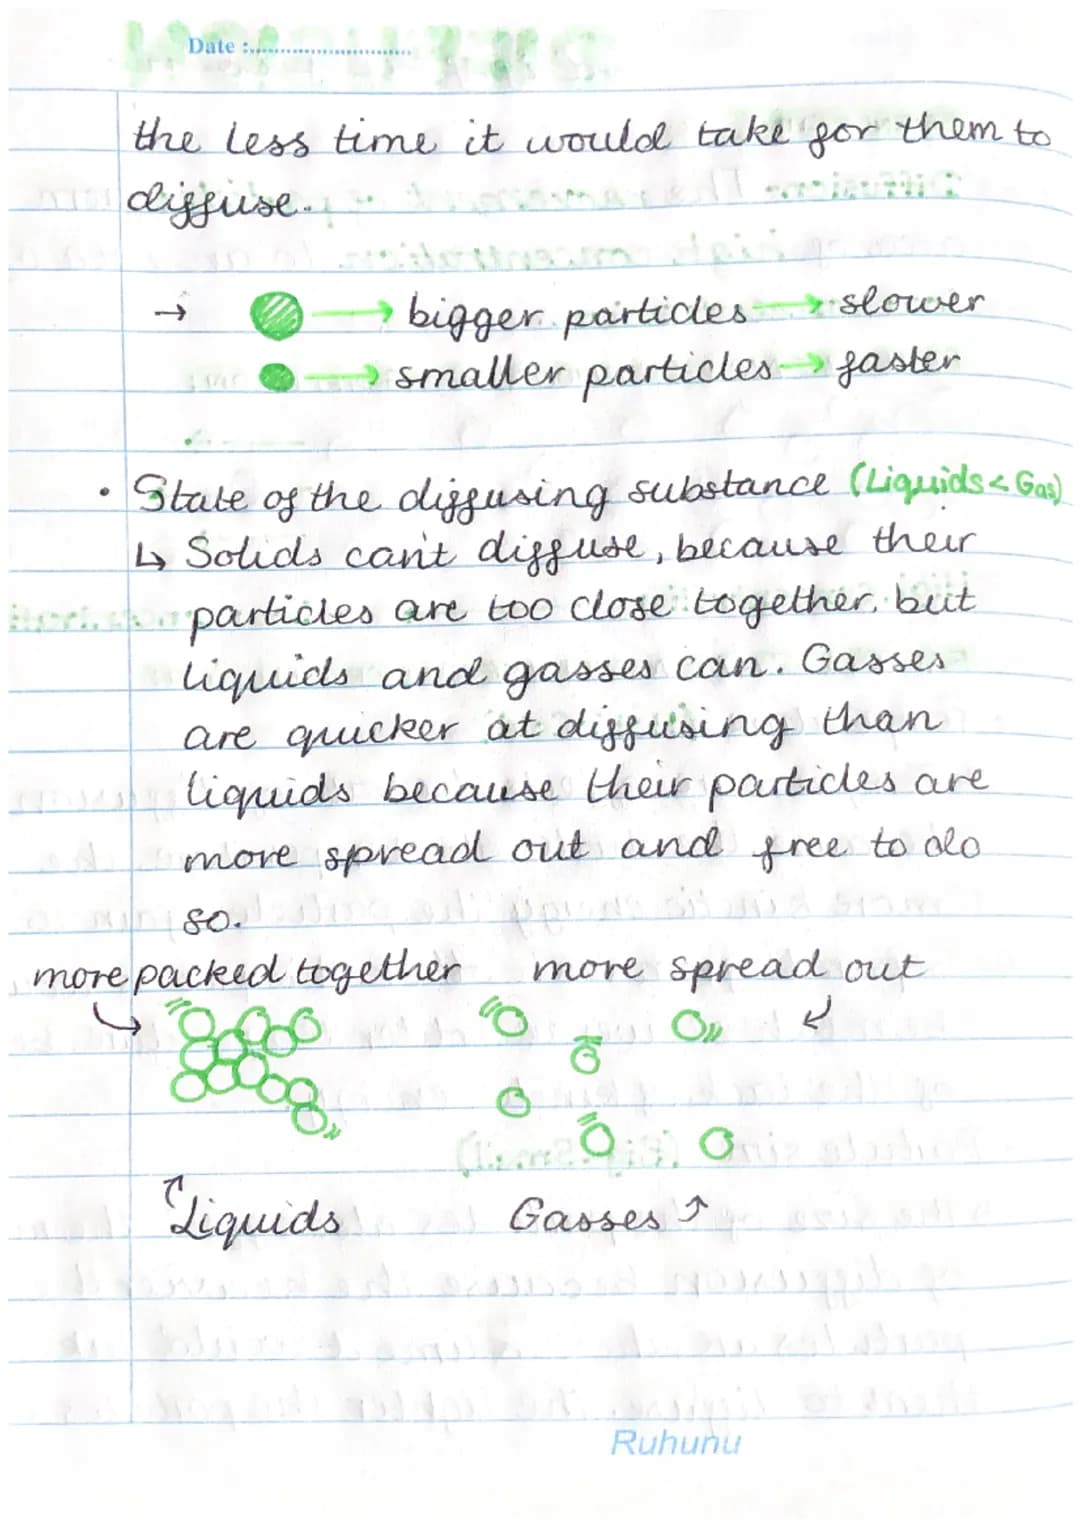 Date :............................
the less time it would take for them to
diffuse.
→ → bigger particles → slower
→ smaller particles → faster
• State of the diffusing substance (Liquids < Gas)
↳ Solids can't diffuse, because their
particles are too close together, but
liquids and gasses can. Gasses
are quicker at diffusing than
liquids because their particles are
more spread out and free to do
so.
more packed together more spread out
Liquids Gasses
Ruhunu